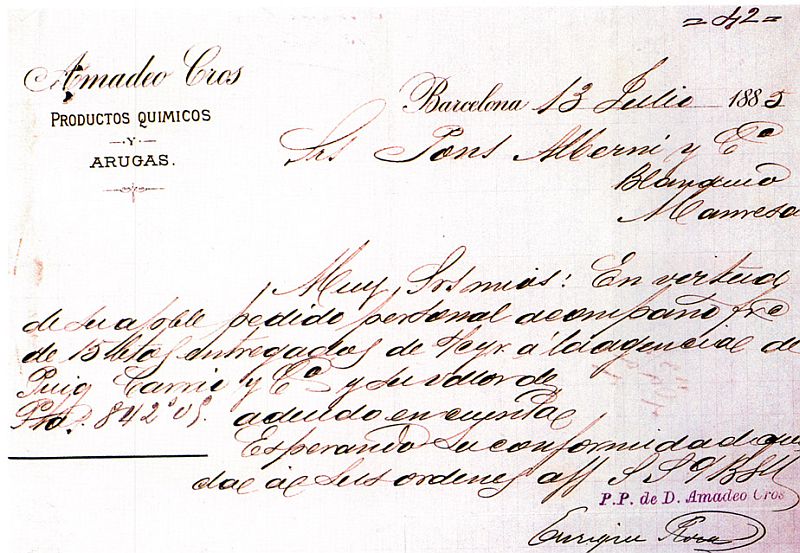 = 42 =
Amadeo Cros
PRODUCTOS QUIMICOS
Y
ARUGAS.
Barcelona 13 Julio 1885
Srs Pons Alberni y Cª
Blanqueo
Manresa
Muy Srs mios: En vertud
de su apble pedido personal acompaño frª
de 15 btos entregados de Hyr. á la agencia de
Puig Carrie y Cª y su valor de
Pta. 842'05. adeudo en cuenta
Esperando su conformidad que
da á sus ordenes aff S S q B S M
P.P. de D. Amadeo Cros
Enrique Roca